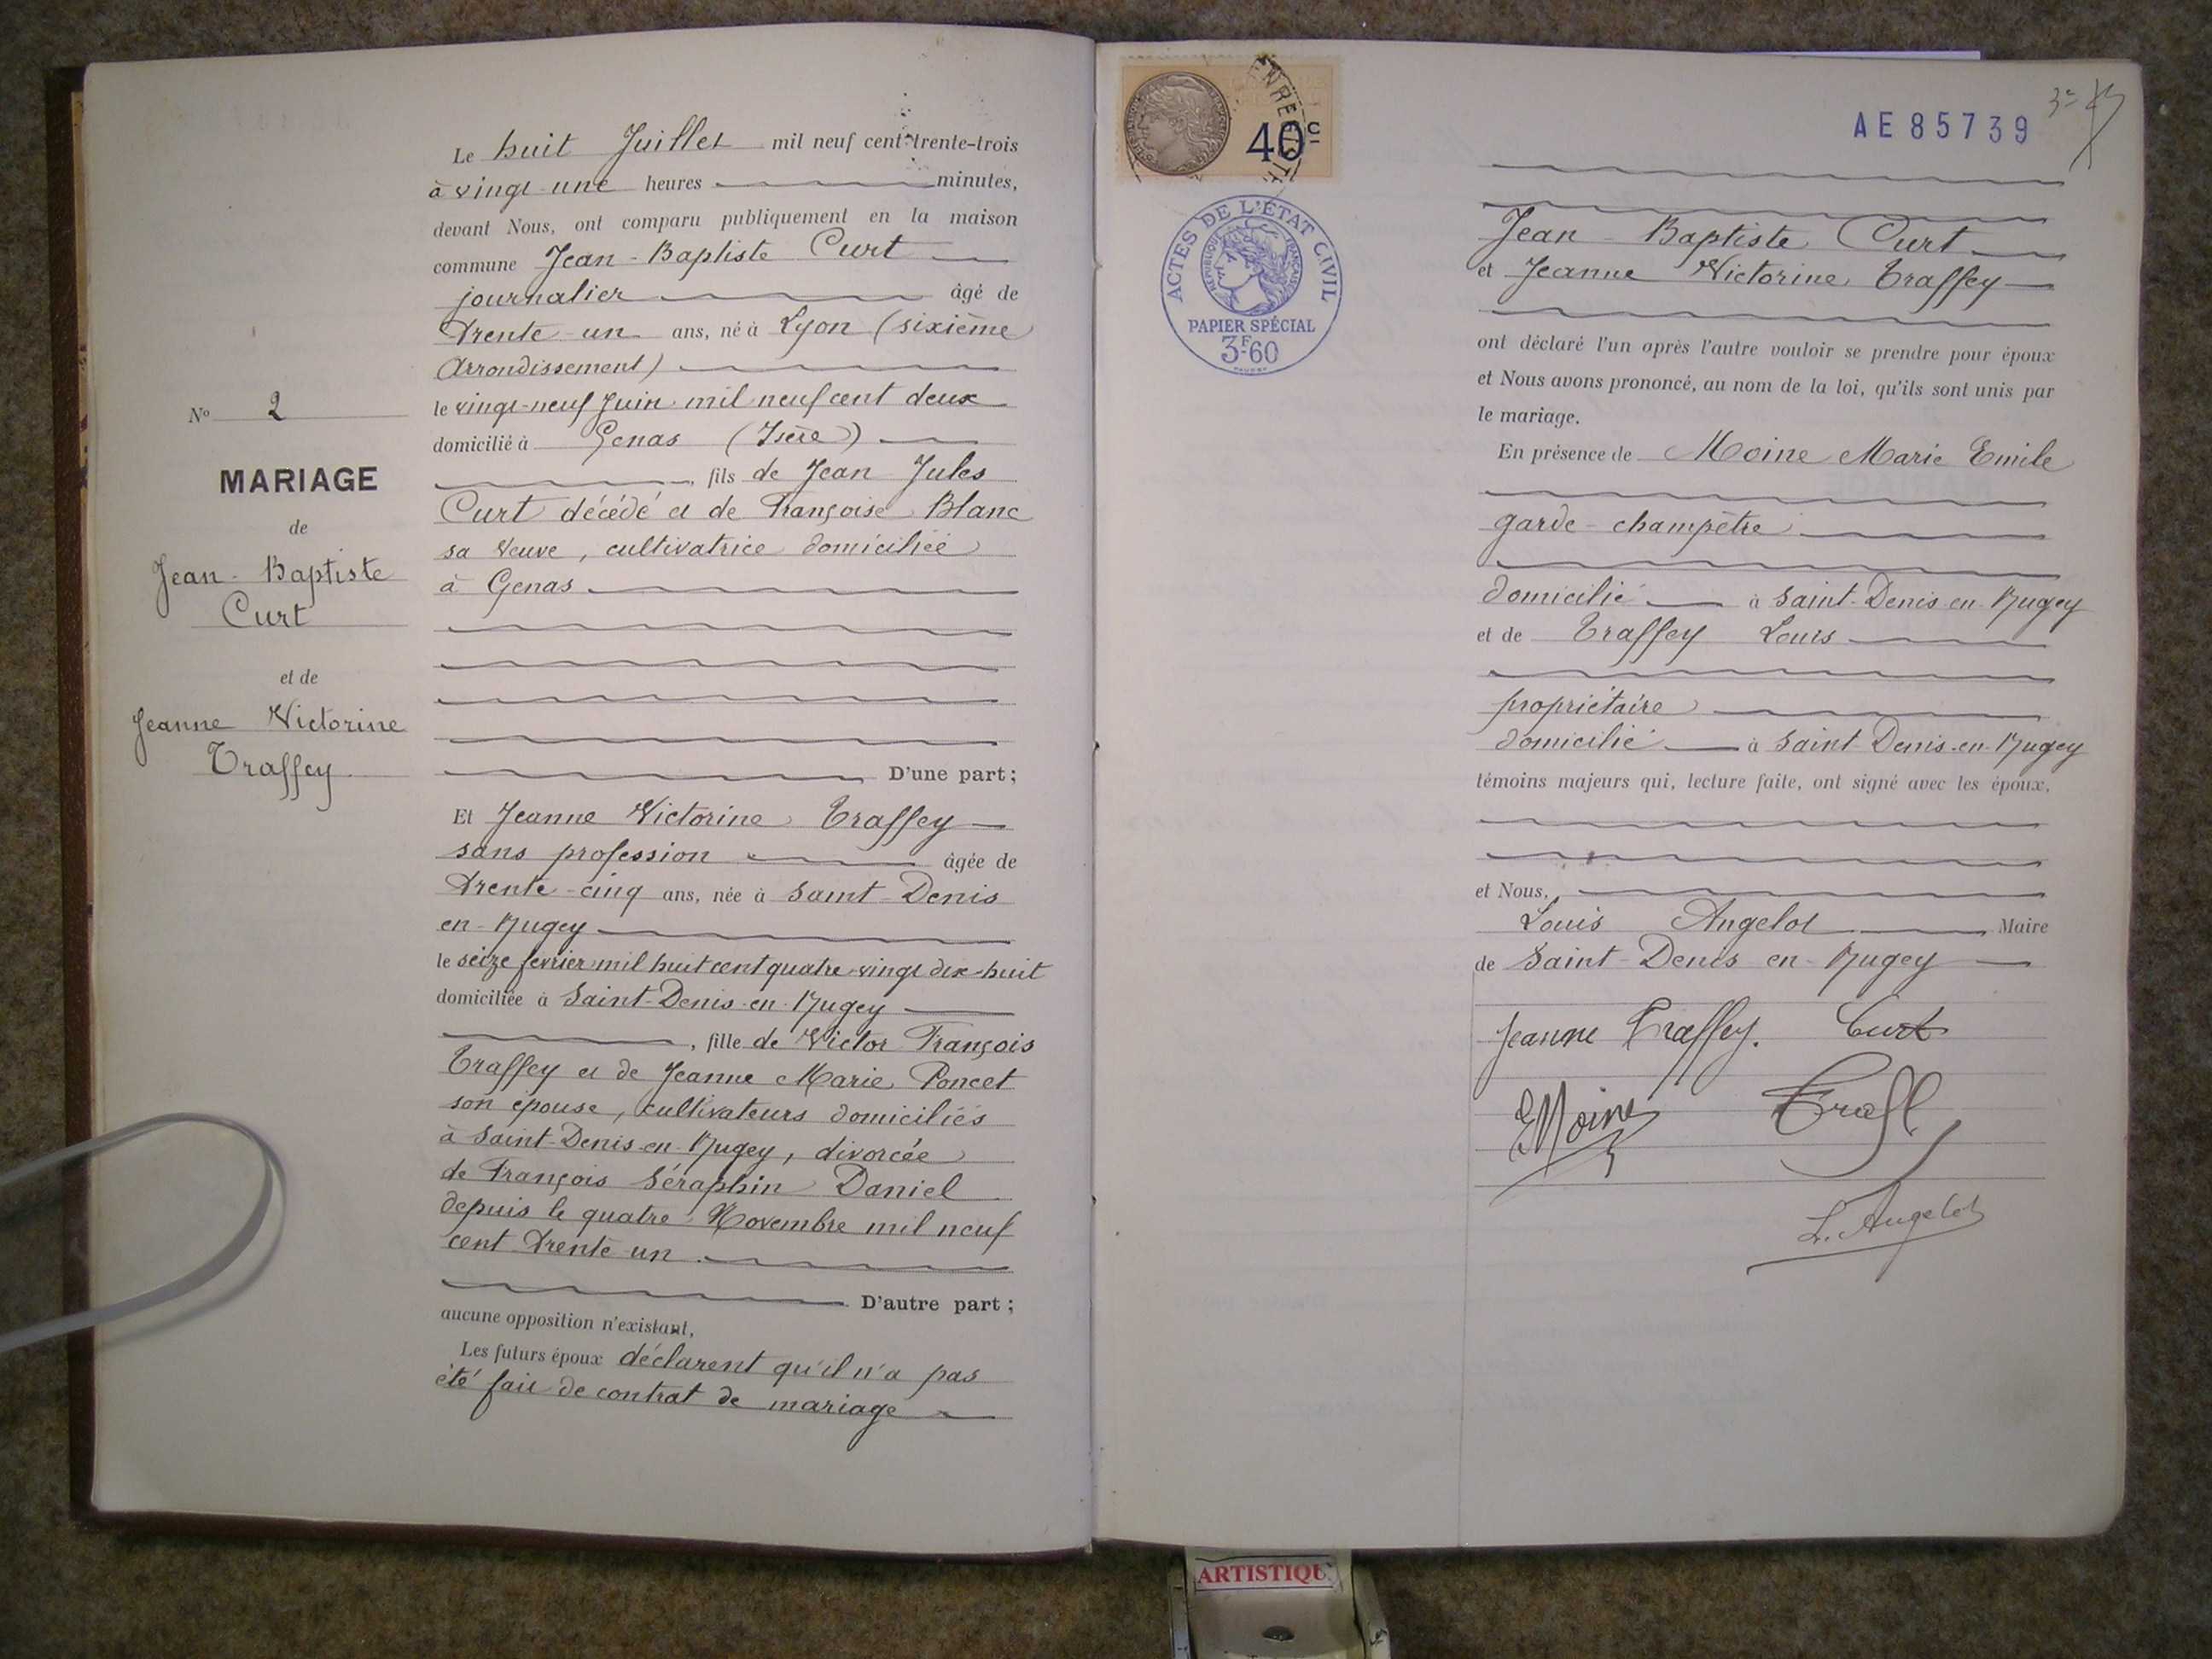 Le huit Juillet mil neuf cent trente-trois
à vingt une heures minutes,
devant Nous, ont comparu publiquement en la maison
commune Jean-Baptiste Curt
journalier âgé de
trente un ans, né à Lyon (sixième
Arrondissement)
le vingt-neuf Juin mil neuf cent deux
domicilié à Genas (Isère)
, fils de Jean Jules
Curt décédé et de Françoise Blanc
sa veuve, cultivatrice domiciliée
à Genas
D'une part;
Et Jeanne Victorine Traffey
sans profession âgée de
trente-cinq ans, née à Saint-Denis
en-Bugey
le seize février mil huit cent quatre-vingt dix-huit
domiciliée à Saint-Denis-en-Bugey
, fille de Victor François
Traffey et de Jeanne Marie Poncet
son épouse, cultivateurs domiciliés
à Saint-Denis-en-Bugey, divorcée
de François Séraphin Daniel
depuis le quatre Novembre mil neuf
cent trente un
D'autre part;
aucune opposition n'existant,
Les futurs époux déclarent qu'il n'a pas
été fait de contrat de mariage
No 2
MARIAGE
de
Jean-Baptiste
Curt
et de
Jeanne Victorine
Traffey
40c
ACTES DE L'ÉTAT CIVIL
RÉPUBLIQUE FRANÇAISE
PAPIER SPÉCIAL
3F60
AE85739
Jean-Baptiste Curt
et Jeanne Victorine Traffey
ont déclaré l'un après l'autre vouloir se prendre pour époux
et Nous avons prononcé, au nom de la loi, qu'ils sont unis par
le mariage.
En présence de Moine Marie Emile
garde-champêtre
domicilié à Saint-Denis-en-Bugey
et de Traffey Louis
propriétaire
domicilié à Saint-Denis-en-Bugey
témoins majeurs qui, lecture faite, ont signé avec les époux,
et Nous,
Louis Angelot Maire
de Saint-Denis-en-Bugey
Jeanne Traffey. Curt
EMoine
L. Angelot
ARTISTIQU